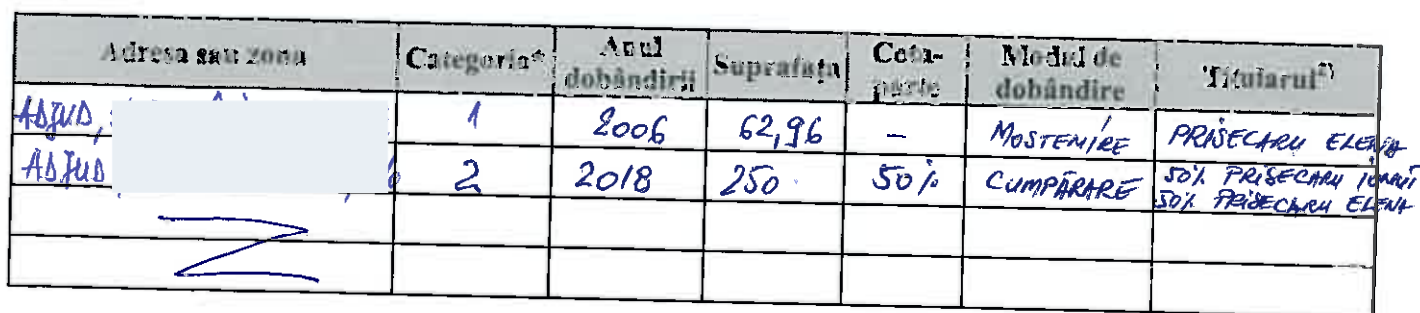 Adresa sau zona Categoria* Anul dobândirii Suprafața Cota-parte Modul de dobândire Titularul²⁾
ADJUD, 1 2006 62,96 – MOSTENIRE PRISECARU ELENA
ADJUD 2 2018 250 50% CUMPĂRARE 50% PRISECARU IONUȚ
50% PRISECARU ELENA